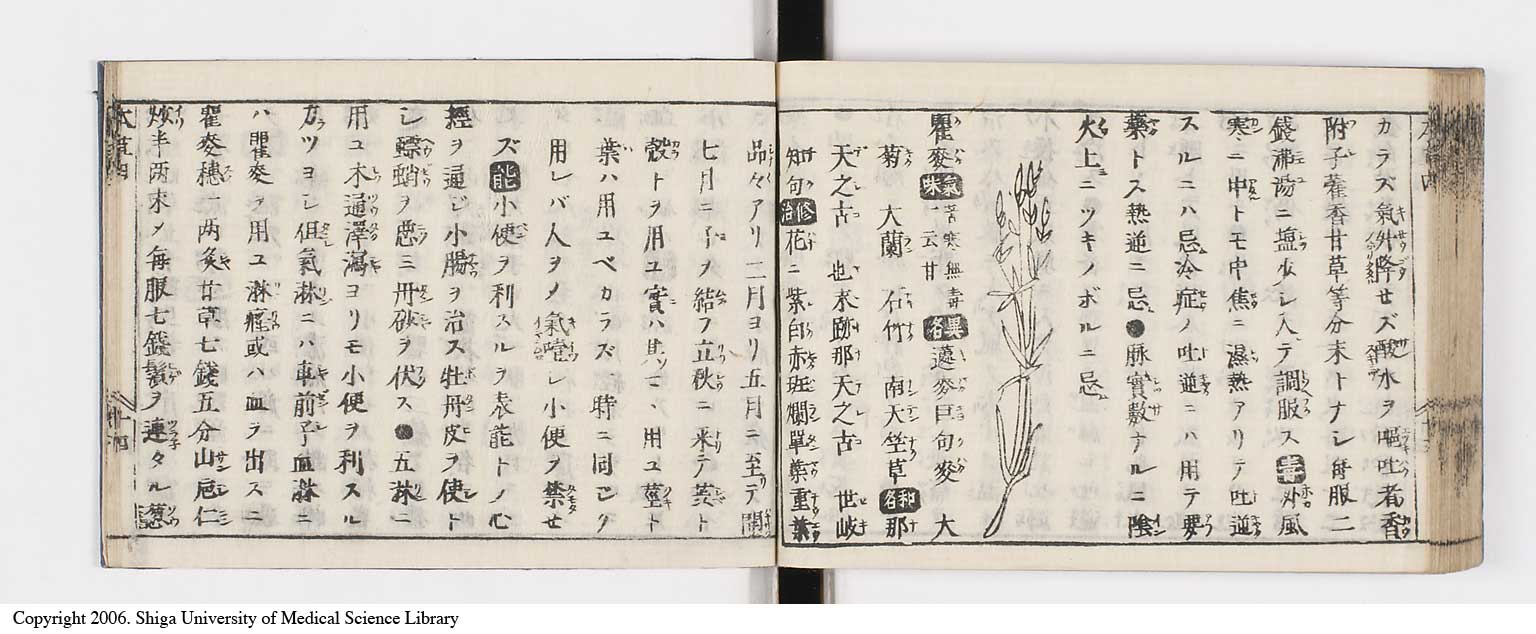 カラズ氣外降セズ酸水ヲ嘔吐者香
附子藿香甘草等分末トナシ毎服二
錢沸湯ニ塩少シ入テ調服ス 外風
寒ニ中トモ中焦ニ濕熱アリテ吐逆
スルニハ忌冷症ノ吐逆ニハ用テ要
藥トス熱逆ニ忌●脉實數ナルニ陰
火上ニツキノボルニ忌
瞿麥 氣味 苦寒無毒一云甘 異名 蘧麥巨句麥 大
菊 大蘭 石竹 南天竺草 和名 那
天之古 也末跡那天之古 世岐
知句 修治 花ニ紫白赤斑爛單葉重葉
品々アリ二月ヨリ五月ニ至テ開
七月ニ子ヲ結フ立秋ニ釆テ莖ト
殻トヲ用ユ實ハ用ユ莖ト
葉ハ用ユベカラズ時ニ同シク
用レバ人ヲノ氣噎シ小便ヲ禁セ
ズ 能 小便ヲ利スルヲ表能トノ心
經ヲ通ジ小腸ヲ治ス牡丹皮ヲ使ト
シ螵蛸ヲ惡ミ丹砂ヲ伏ス●五淋ニ
用ユ木通澤瀉ヨリモ小便ヲ利スル
力ツヨシ但氣淋ニハ車前子血淋ニ
ハ瞿麥ヲ用ユ淋瘂或ハ血ヲ出スニ
瞿麥穗一兩炙甘草七錢五分山巵仁
炒半兩末メ毎服七錢鬚ヲ連タル葱
Copyright 2006. Shiga University of Medical Science Library